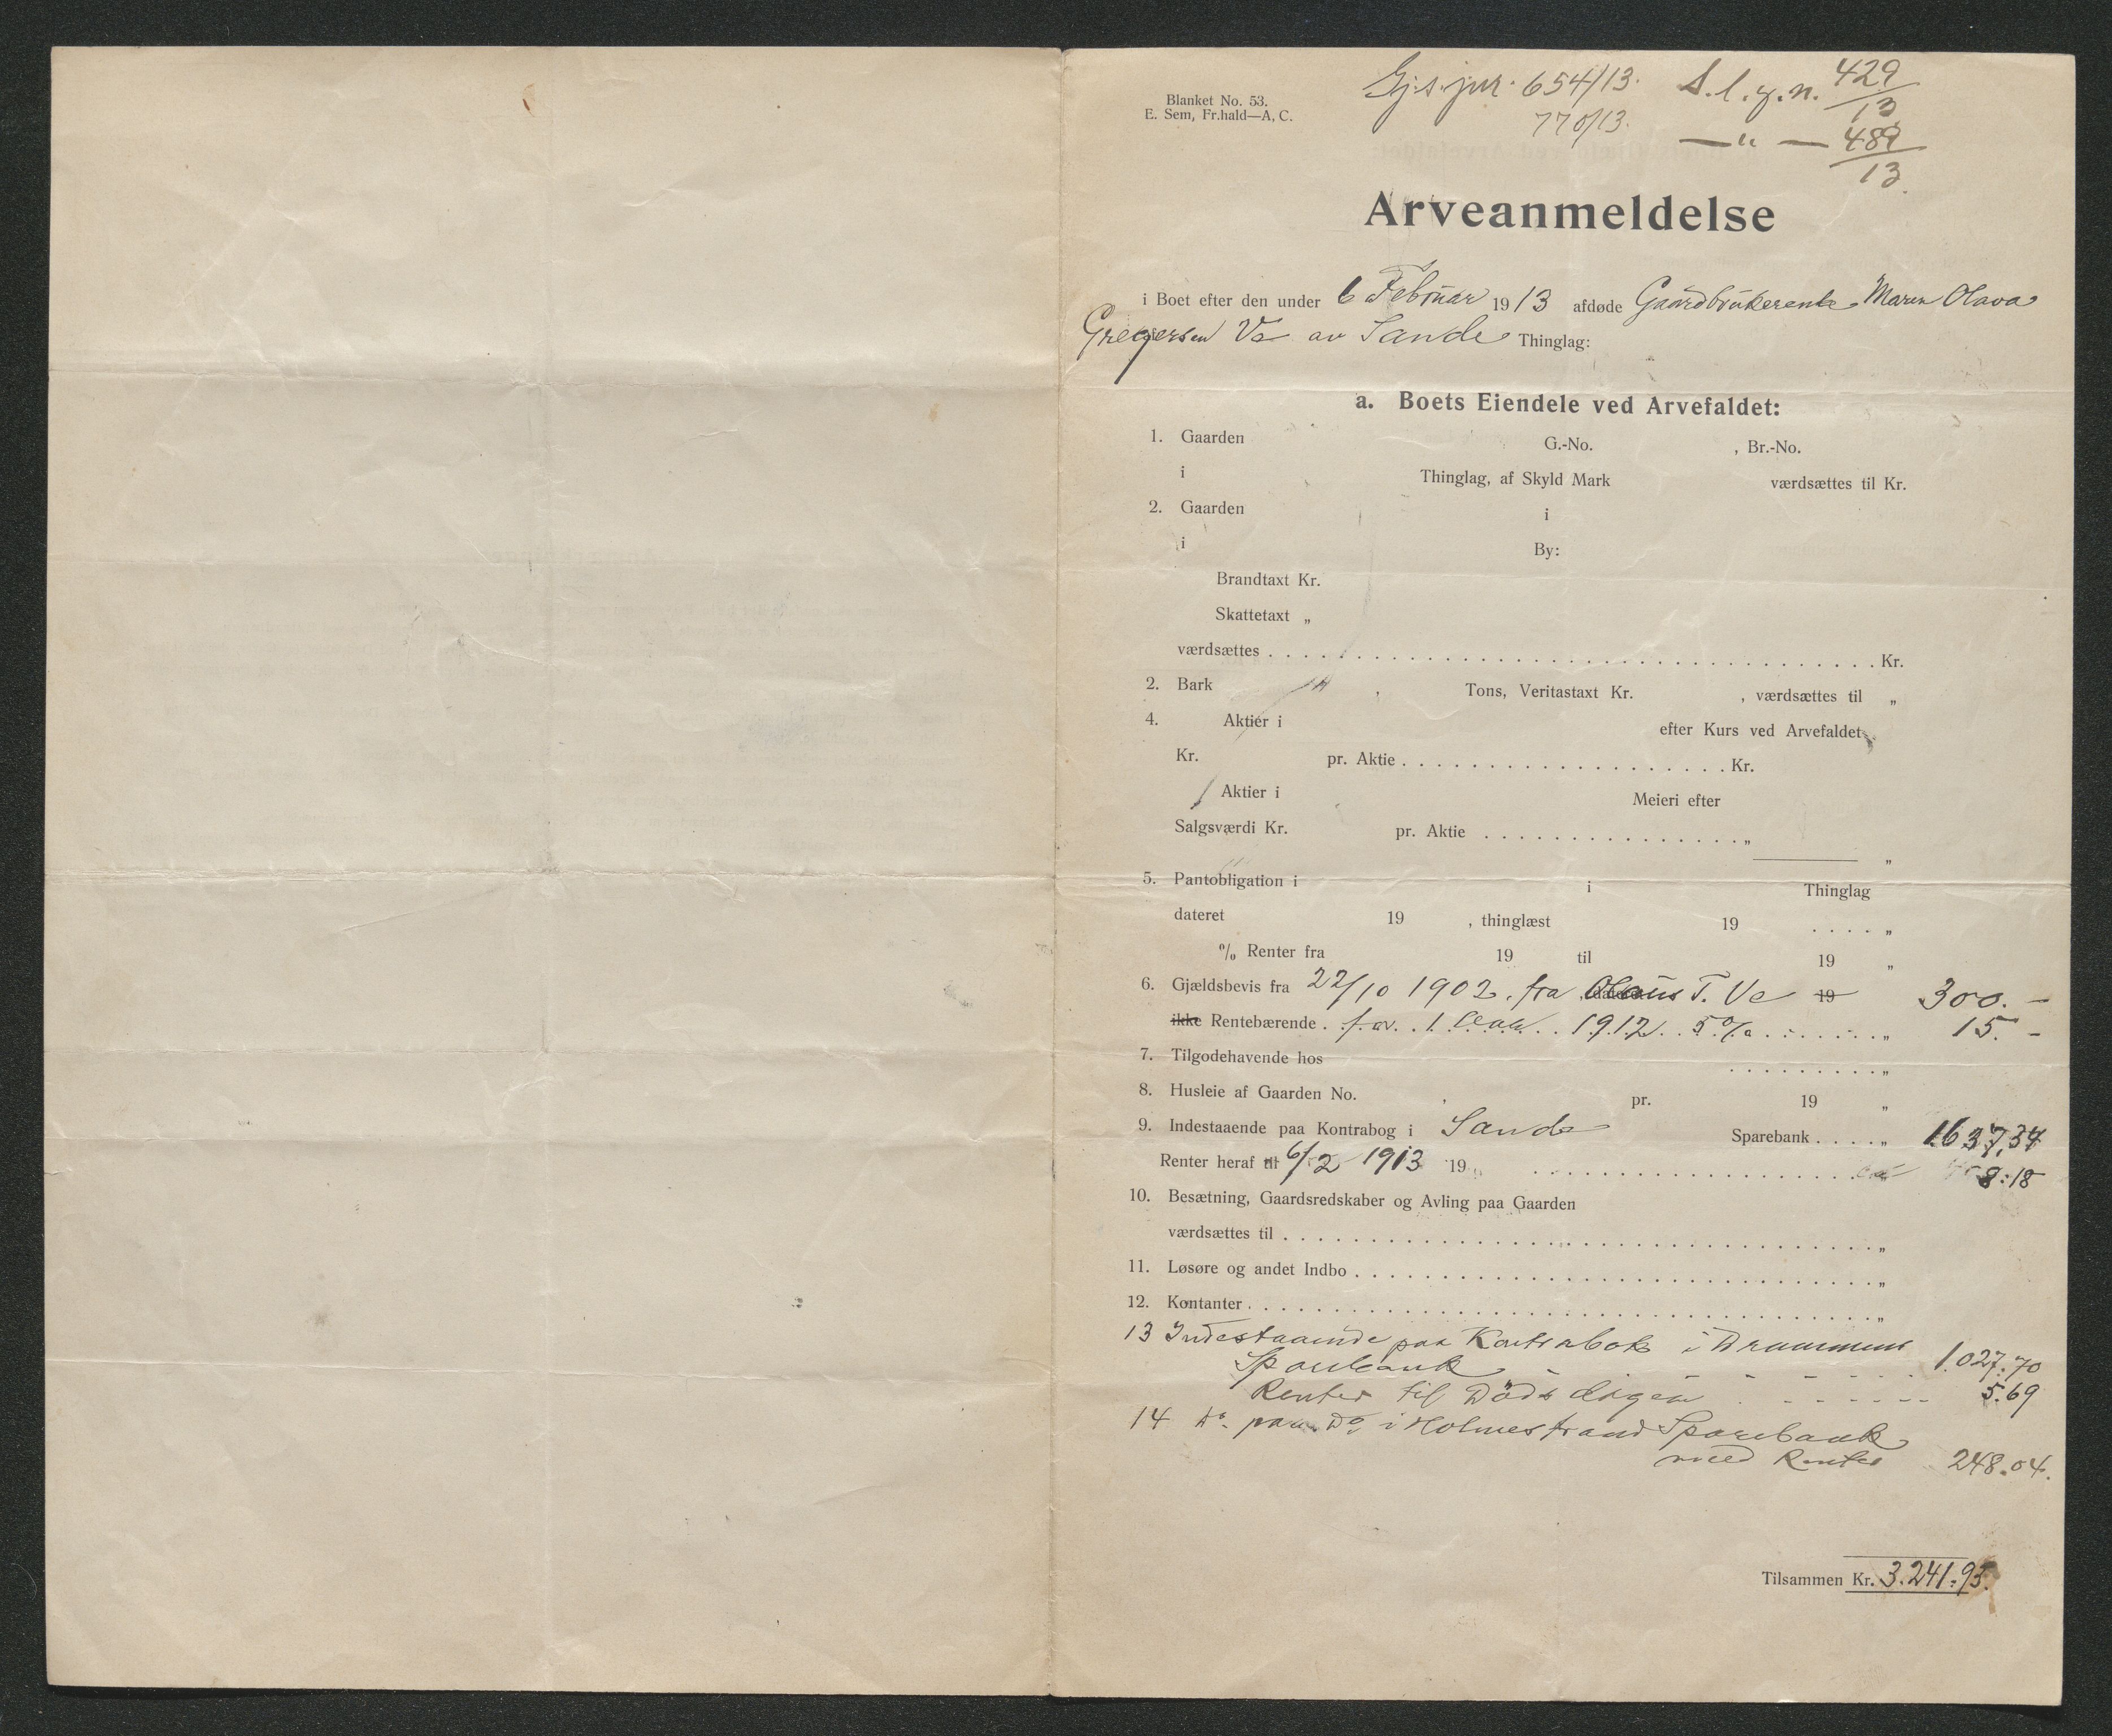 Blanket No. 53.
E. Sem, Fr.hald—A, C.
Gj.s.jur. 654/13.
770/13.
S.l.y.n. 429/13
—"— 489/13
Arveanmeldelse
i Boet efter den under 6 Februar 1913 afdøde Gaardbrukerenke Maren Olava
Gregersen Ve av Sande Thinglag:
a. Boets Eiendele ved Arvefaldet:
1. Gaarden G.-No. , Br.-No.
i Thinglag, af Skyld Mark værdsættes til Kr.
2. Gaarden i
i By:
Brandtaxt Kr.
Skattetaxt „
værdsættes . . . . . . . . . . Kr.
2. Bark , Tons, Veritastaxt Kr. , værdsættes til „
4. Aktier i efter Kurs ved Arvefaldet
Kr. pr. Aktie . . . . . . . . . . Kr.
Aktier i Meieri efter
Salgsværdi Kr. pr. Aktie . . . . . . . . . . „
„
5. Pantobligation i i Thinglag
dateret 19 , thinglæst 19 . . . . „
% Renter fra 19 til 19 „
6. Gjældsbevis fra 22/10 1902, fra Olaus T. Ve 19 300.-
ikke Rentebærende . fra 1 1912 5% . . . . . . „ 15.-
7. Tilgodehavende hos . . . . . . . . . . „
8. Husleie af Gaarden No. , pr. 19 „
9. Indestaaende paa Kontrabog i Sande Sparebank . . . . „ 1637,34
Renter heraf til 6/2 1913 19 . . . . . . . . . . 8:18
10. Besætning, Gaardsredskaber og Avling paa Gaarden
værdsættes til . . . . . . . . . . „
11. Løsøre og andet Indbo . . . . . . . . . . „
12. Kontanter . . . . . . . . . . „
13 Indestaaende paa Kontrabok i Drammens
Sparebank - - - - - 1.027.70
Renter til Dödsdagen - - - - - 5.69
14 Do. paa Do. i Holmestrand Sparebank
med Renter 248.04.
Tilsammen Kr. 3.241.95.